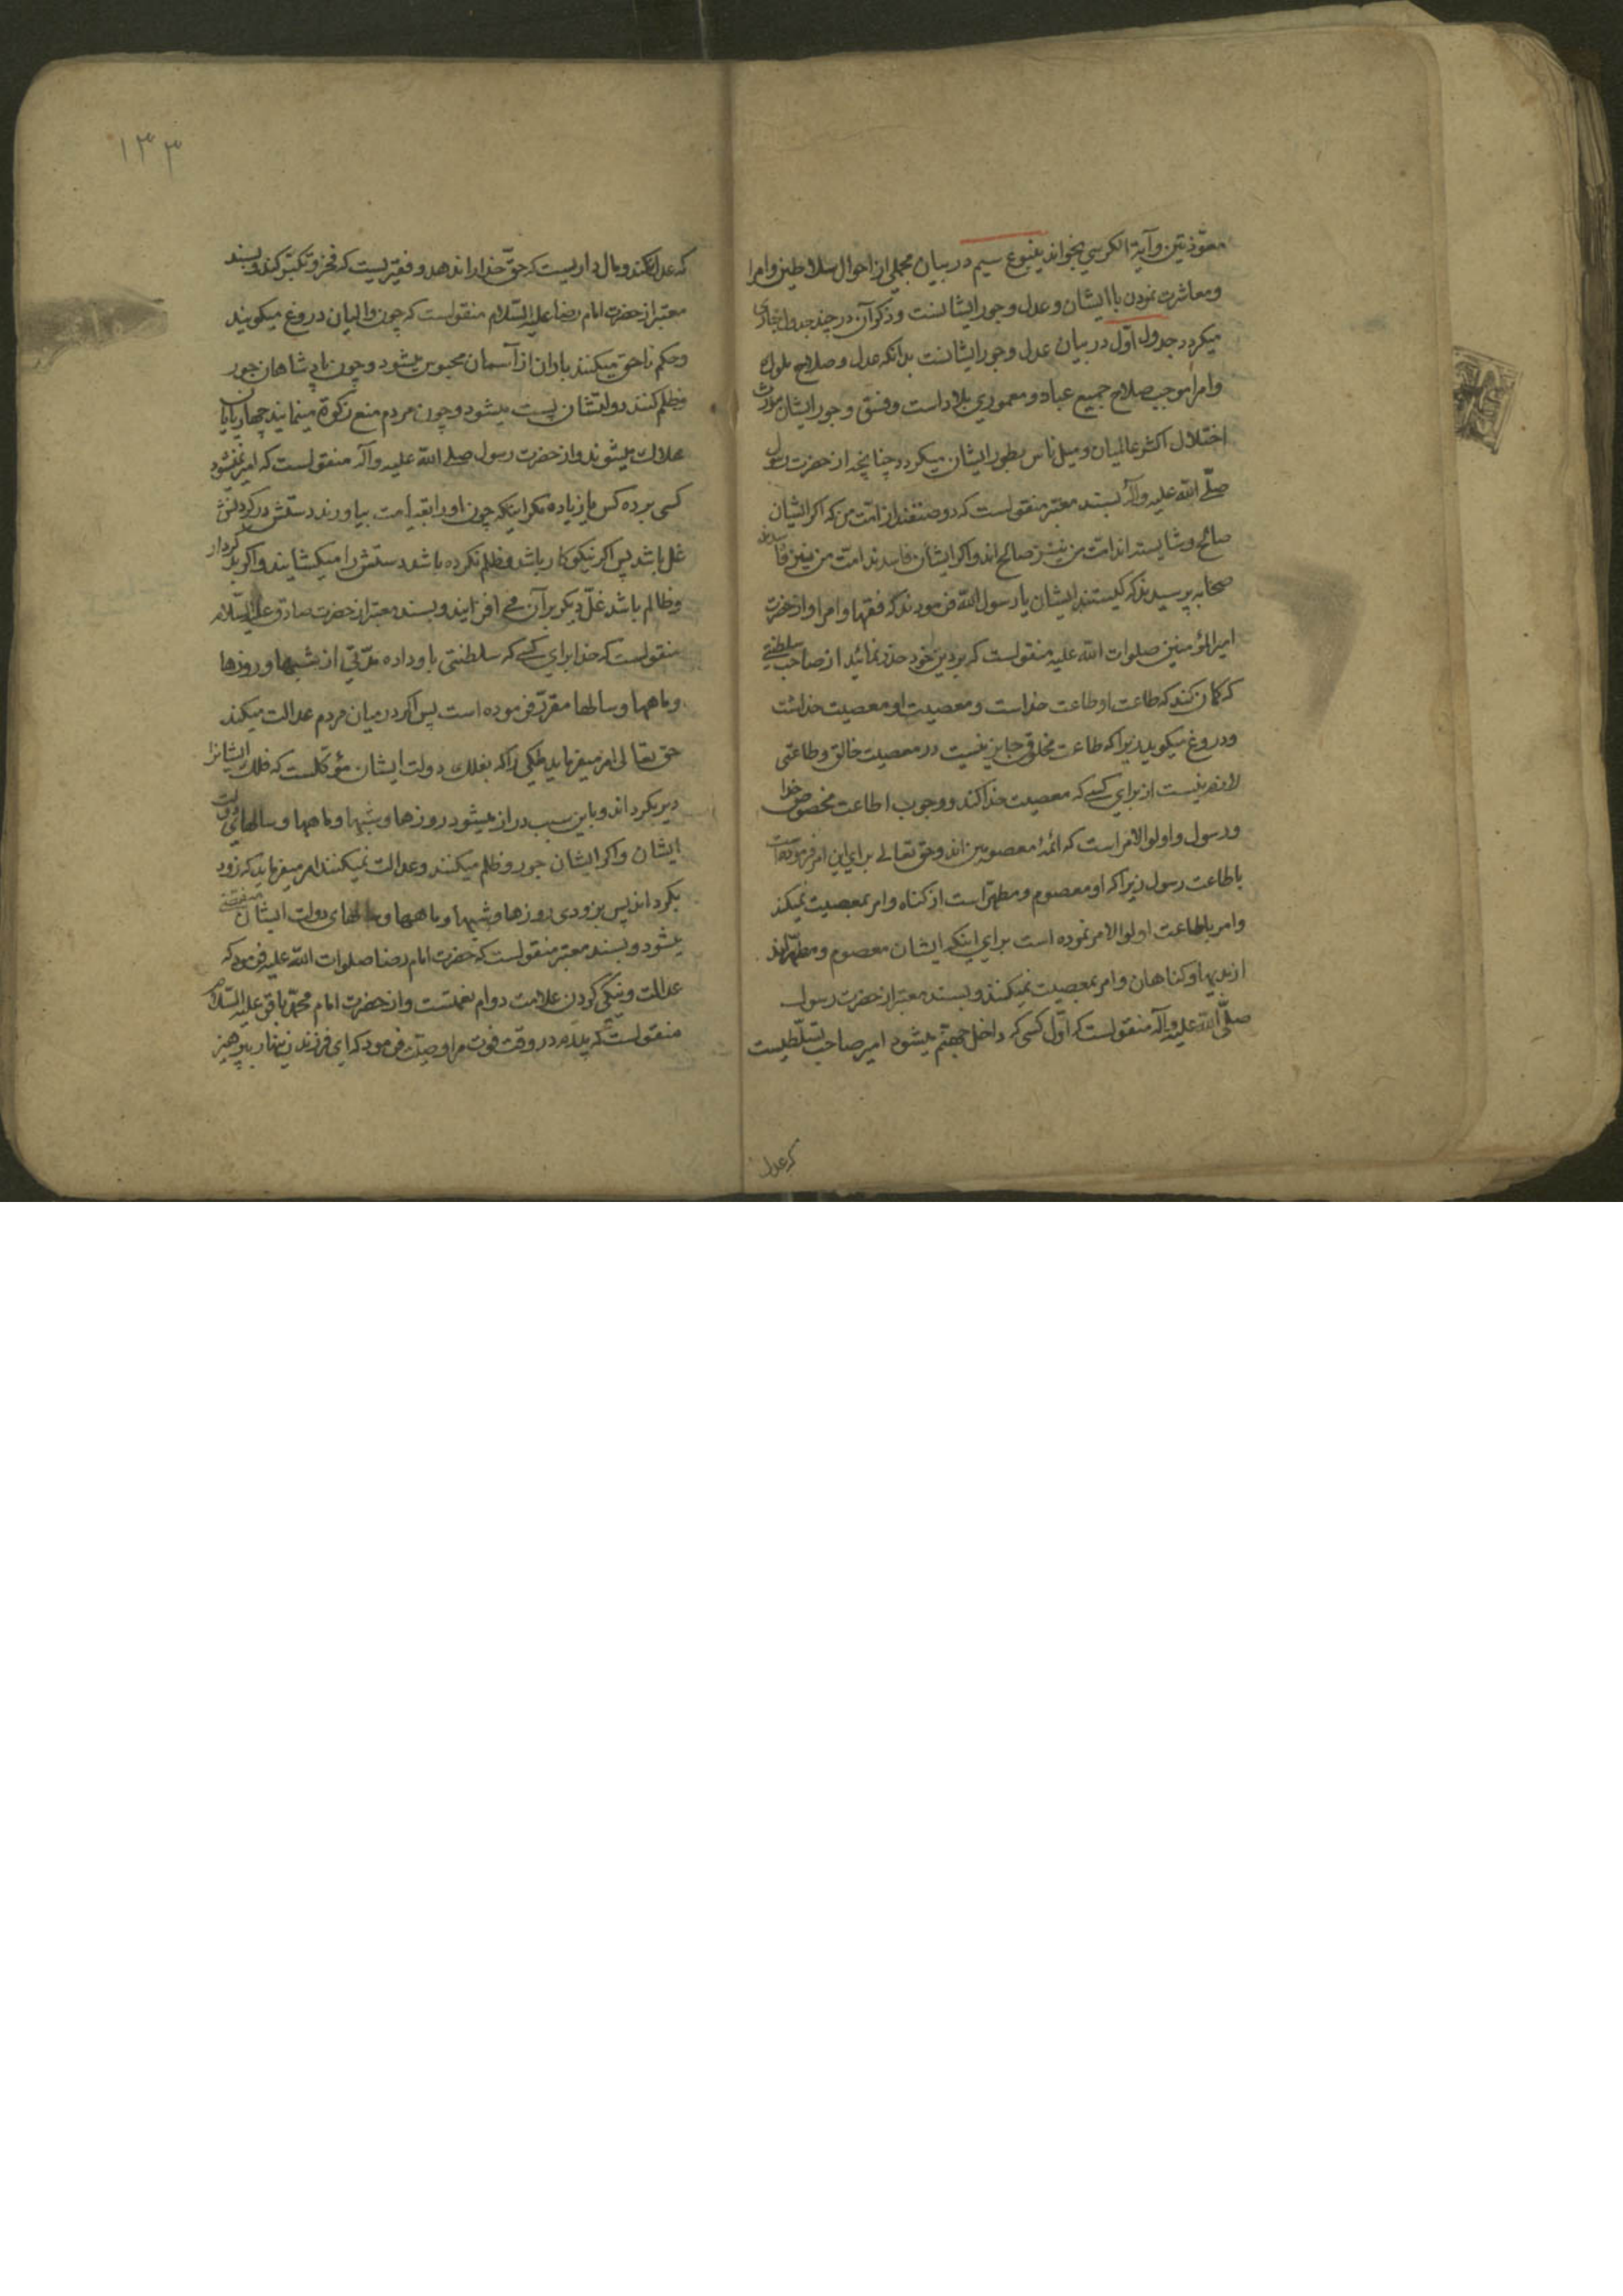 معوّذتین و آیة الکرسی بخواند ینبوع سیم در بیان مجملی از احوال سلاطین و امرا
و معاشرت نمودن با ایشان و عدل و جور ایشانست و ذکر آن در چند جدول جاری
میکردد جدول اوّل در بیان عدل و جور ایشانست بدانکه عدل و صلاح ملوک
و امرا موجب صلاح جمیع عباد و معموری بلاد است و فسق و جور ایشان مورث
اختلال اکثر عالمیان و میل ناس بطور ایشان میکردد چنانچه از حضرت رسول
صلّی الله علیه و آله بسند معتبر منقولست که دو صنفند از امّت من که اکر ایشان
صالح و شایسته اند امّت من نیز صالح اند و اکر ایشان فاسدند امّت من نیز فاسدند
صحابه پرسیدند که کیستند ایشان یا رسول الله فرمودند که فقها و امرا و از حضرت
امیر المؤمنین صلوات الله علیه منقولست که بر دین خود حذر نمائید از صاحب سلطنتی
که کمان کند که طاعت او طاعت خداست و معصیت او معصیت خداست
و دروغ میکوید زیرا که طاعت مخلوق جایز نیست در معصیت خالق و طاعتی
لازم نیست از برای کسی که معصیت خدا کند و وجوب اطاعت مخصوص خدا
و رسول و اولوا الامر است که ائمّهٔ معصومین اند و حق تعالی برای این امر فرموده است
باطاعت رسول زیرا که او معصوم و مطهّر است از کناه و امر بمعصیت نمیکند
و امر باطاعت اولوا الامر نموده است برای اینکه ایشان معصوم و مطهّرند
از بدیها و کناهان و امر بمعصیت نمیکنند و بسند معتبر از حضرت رسول
صلّی الله علیه و آله منقولست که اوّل کسی که داخل جهنّم میشود امیر صاحب تسلّطیست
که عدل
۱۳۳
که عدل نکند و مال داریست که حقّ خدا را ندهد و فقیریست که فخر و تکبّر کند و بسند
معتبر از حضرت امام رضا علیه السّلام منقولست که چون والیان دروغ میکویند
و حکم ناحق میکنند باران از آسمان محبوس میشود و چون پادشاهان جور
و ظلم کنند دولتشان پست میشود و چون مردم منع زکوة مینمایند چهارپایان
هلاک میشوند و از حضرت رسول صلی الله علیه و آله منقولست که امیر نمیشود
کسی بر ده کس یا زیاده مکر اینکه چون او را بقیامت بیاورند دستش در کردنش
غل باشد پس اکر نیکوکار باشد و ظلم نکرده باشد دستش را میکشایند و اکر بد کردار
و ظالم باشد غلّ دیکر بر آن می افزایند و بسند معتبر از حضرت صادق علیه السّلام
منقولست که خدا برای کسی که سلطنتی باو داده مدّتی از شبها و روزها
و ماهها و سالها مقرّر فرموده است پس اکر در میان مردم عدالت میکند
حق تعالی امر میفرماید ملکی را که بفلک دولت ایشان مؤکّلست که فلک ایشانرا
دیر بکرداند و باین سبب دراز میشود روزها و شبها و ماهها و سالهای دولت
ایشان و اکر ایشان جور و ظلم میکنند و عدالت نمیکنند امر میفرماید که زود
بکرداند پس بزودی روزها و شبها و ماهها و سالهای دولت ایشان منقضی
میشود و بسند معتبر منقولست که حضرت امام رضا صلوات الله علیه فرمود که
عدالت و نیکی کردن علامت دوام نعمتست و از حضرت امام محمّد باقر علیه السّلام
منقولست که پدرم در وقت فوت مرا وصیّت فرمود که ای فرزند زینهار بپرهیز